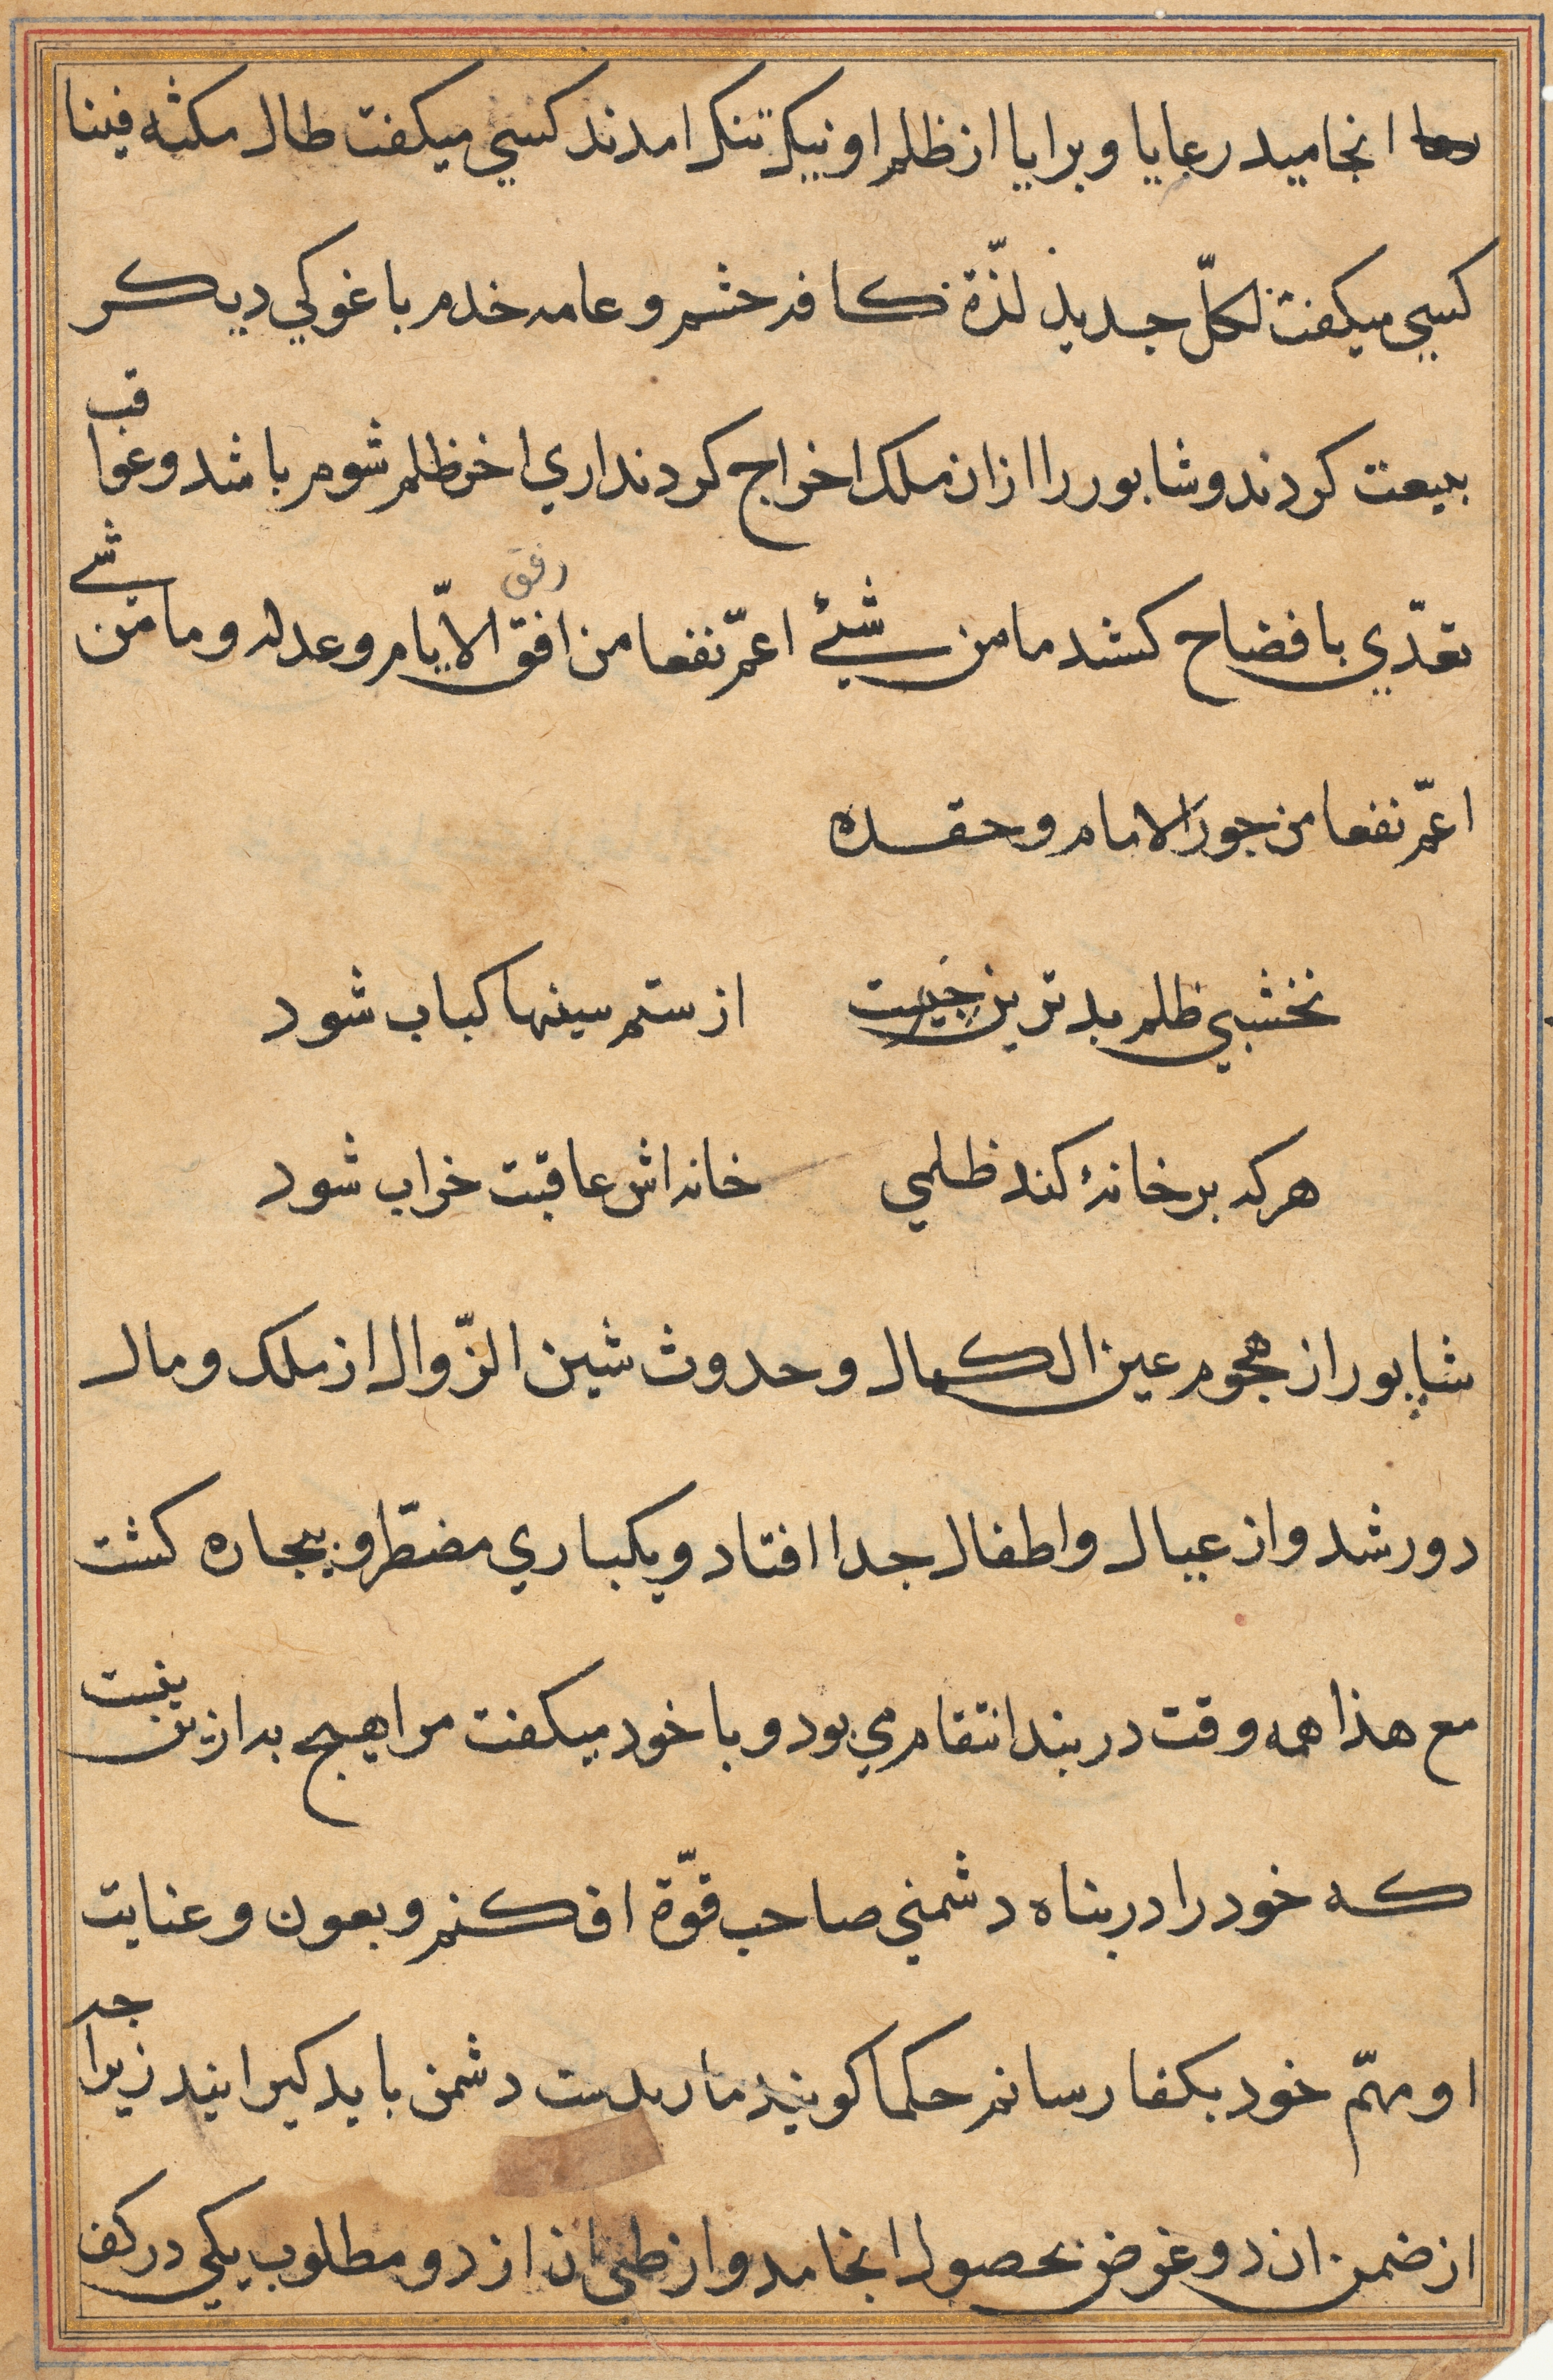 انجامید رعایا و برایا از ظلم او نیک تنک امدند کسی میکفت طال مکثه فینا
کسی میکفت لکلّ جدیذ لذّة کافه حشم و عامه خدم با غوکی دیکر
بیعت کردند و شابور را ازان ملک اخراج کردند اری اخر ظلم شوم باشد و عواقب
تعدّی بافضاح کشد ما من شیئ اعمّ نفعا من رفق الایّام و عدله و ما من شے
اعمّ نفعا من جور الامام و حقده
نخشبی ظلم بدترین چیزست از ستم سینها کباب شود
هرکه بر خانهٔ کند ظلمی خانه‌اش عاقبت خراب شود
شاپور از هجوم عین الکمال و حدوث شین الزّوال از ملک و مال
دور شد و از عیال و اطفال جدا افتاد و یکباری مضطّر و بیچاره کشت
مع هذا همه وقت در بند انتقام می بود و با خود میکفت مرا هیچ به ازین نیست
که خود را در بناه دشمنی صاحب قوّة افکنم و بعون و عنایت
او مهمّ خود بکفا رسانم حکما کویند مار بدست دشمن باید کیرانید زیراچه
از ضمن ان دو غرض بحصول انجامد و از طی ان از دو مطلوب یکی در کف